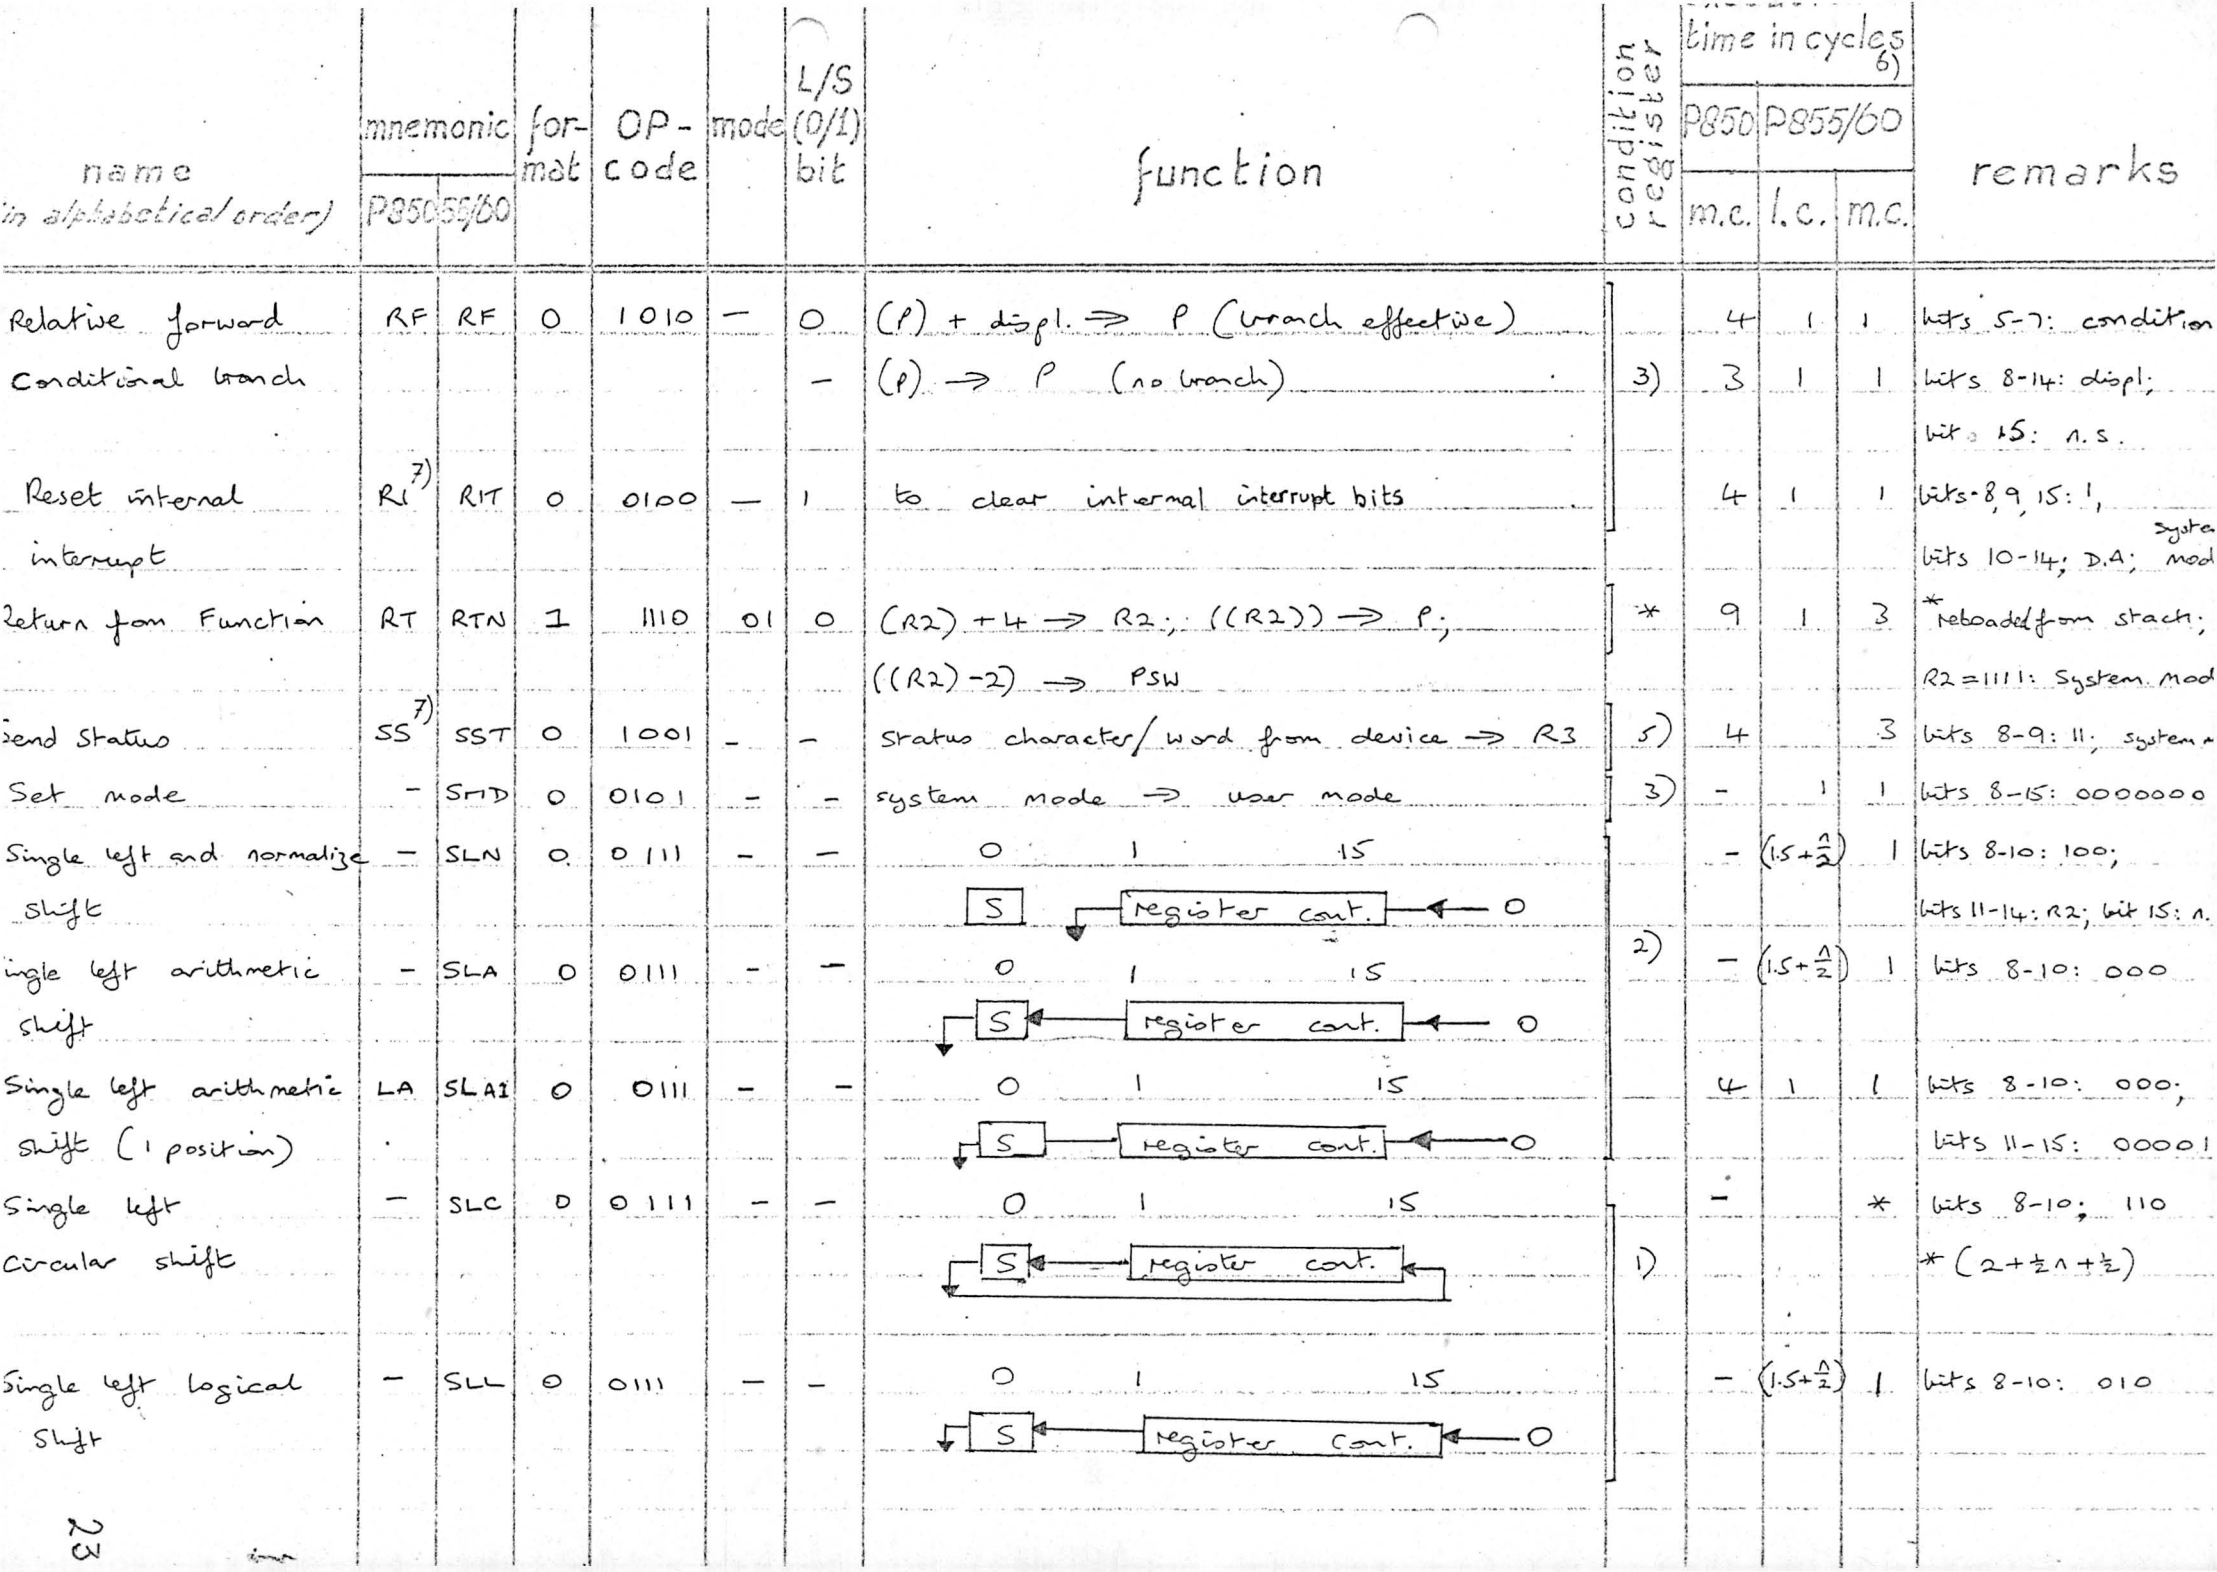 time in cycles 6)
L/S
condition register
mnemonic for- OP- mode (0/1) P850 P855/60
name mat code bit function remarks
in alphabetical order) P850 55/60 m.c. l.c. m.c.
Relative forward RF RF 0 1010 — 0 (P) + displ. ⇒ P (branch effective) 4 1 1 bits 5-7: condition
Conditional branch — (P) → P (no branch) 3) 3 1 1 bits 8-14: displ;
bit 15: n.s.
Reset internal RI 7) RIT 0 0100 — 1 to clear internal interrupt bits 4 1 1 bits 8,9,15: 1,
interrupt bits 10-14; D.A; syste mod
Return fom Function RT RTN 1 1110 01 0 (R2) + 4 → R2; ((R2)) → P; * 9 1 3 * reloaded from stack;
((R2)-2) → PSW R2=1111: System mod
Send Status SS 7) SST 0 1001 - - status character/word from device → R3 5) 4 3 bits 8-9: 11; system
Set mode - SMD 0 0101 - - system mode → user mode 3) - 1 1 bits 8-15: 0000000
Single left and normalize - SLN 0 0111 - - 0 1 15 - (1.5+n/2) 1 bits 8-10: 100;
shift S register cont. 0 bits 11-14: R2; bit 15: n.
ingle left arithmetic - SLA 0 0111 - - 0 1 15 2) - (1.5+n/2) 1 bits 8-10: 000
shift S register cont. 0
Single left arithmetic LA SLA1 0 0111 - - 0 1 15 4 1 1 bits 8-10: 000;
shift (1 position) S register cont. 0 bits 11-15: 00001
Single left - SLC 0 0111 - - 0 1 15 - * bits 8-10; 110
Circular shift S register cont. 1) * (2+½n+½)
Single left logical - SLL 0 0111 - - 0 1 15 - (1.5+n/2) 1 bits 8-10: 010
Shift S register cont. 0
23